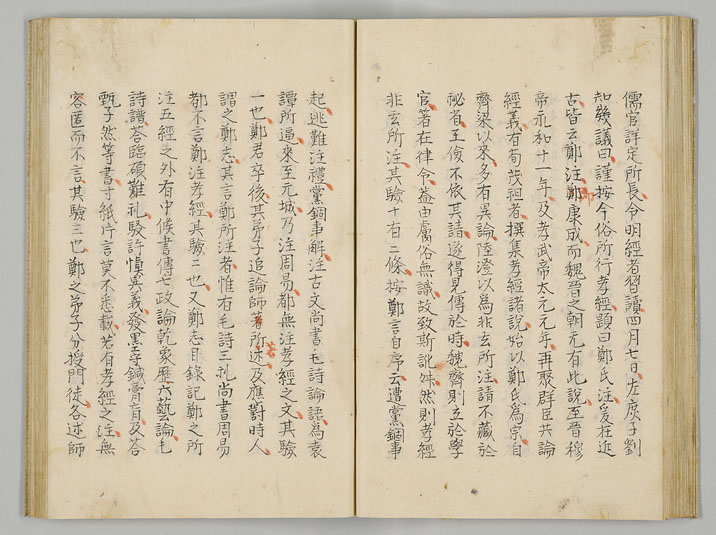 儒官詳定所長令明經者習讀四月七日左庶子劉
知幾議曰謹按今俗所行孝經題曰鄭氏注爰在近
古皆云鄭注即康成而魏晉之朝元有此說至晉穆
帝永和十一年及孝武帝太元元年再聚群臣共論
經義有荀茂祖者撰集孝經諸說始以鄭氏為宗自
齊梁以來多有異論陸澄以為非玄所注請不藏於
秘省王儉不依其請遂得見傳於時魏齊則立於學
官箸在律令蓋由膚俗無識故致斯訛舛然則孝經
非玄所注其驗十有二條按鄭言自序云遭黨錮事
起逃難注禮黨錮事解注古文尚書毛詩論語為袁
譚所逼來至元城乃注周易都無注孝經之文其驗
一也鄭君卒後其弟子追論師著所述及應對時人
謂之鄭志其言鄭所注者惟有毛詩三礼尚書周易
都不言鄭注孝經其驗二也又鄭志目錄記鄭之所
注五經之外有中候書傳七政論乾象歷六藝論毛
詩譜荅臨碩難礼駁許慎異義發墨守鍼膏肓及荅
甄子然等書寸紙片言莫不悉載若有孝經之注無
容匿而不言其驗三也鄭之弟子分授門徒各述師